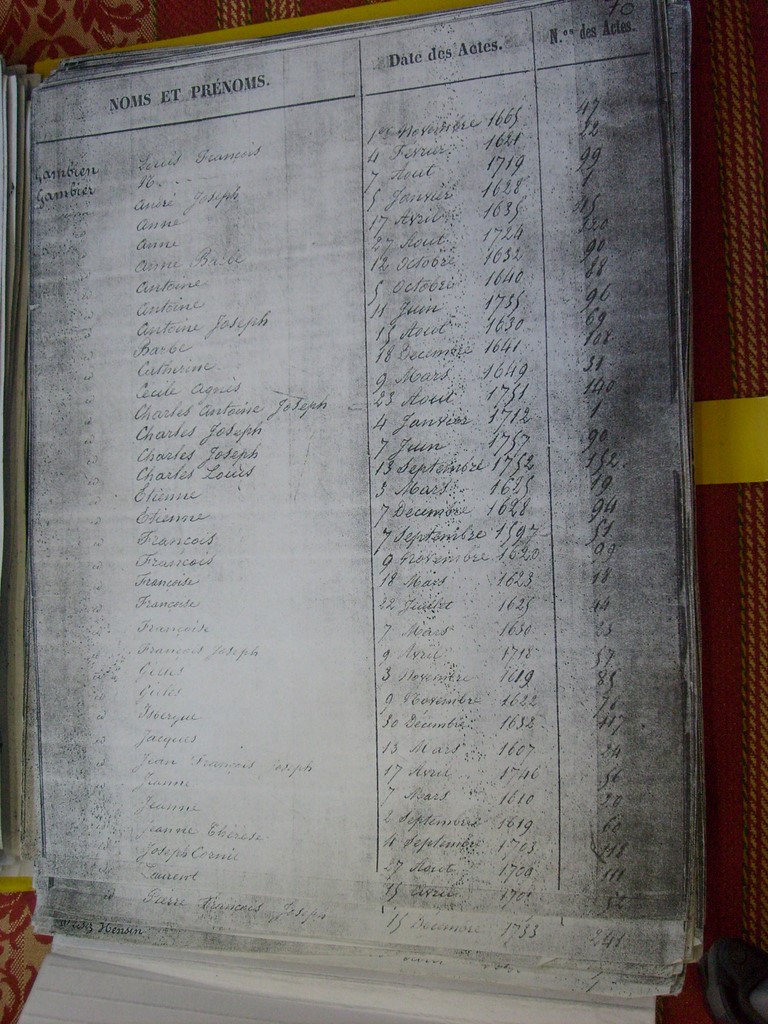 70
NOMS ET PRÉNOMS. Date des Actes. N.os des Actes.
Gambien Louis François 1er Novembre 1665 47
Gambier N. 4 Fevrier 1621 22
André Joseph 7 Aout 1719 99
Anne 5 Janvier 1628 1
Anne 17 Avril 1635 45
Anne Barbe 27 Aout 1724 220
Antoine 12 Octobre 1632 90
Antoine 5 Octobre 1640 88
Antoine Joseph 11 Juin 1735 96
Barbe 15 Aout 1630 69
Catherine 18 Decembre 1641 108
Cecile Agnès 9 Mars 1649 31
Charles Antoine Joseph 23 Aout 1751 140
Charles Joseph 4 Janvier 1712 1
Charles Joseph 7 Juin 1757 90
Charles Louis 13 Septembre 1752 152
Etienne 3 Mars 1625 19
Etienne 7 Decembre 1628 94
François 7 Septembre 1597 51
François 9 Novembre 1620 99
Françoise 18 Mars 1623 18
Françoise 22 Juillet 1625 44
Françoise 7 Mars 1630 23
François Joseph 9 Avril 1718 57
Gilles 3 Novembre 1619 85
Gilles 9 Novembre 1622 76
Isbergue 30 Decembre 1632 117
Jacques 13 Mars 1607 24
Jean François Joseph 17 Avril 1746 56
Jeanne 7 Mars 1610 20
Jeanne 2 Septembre 1619 60
Jeanne Thérèse 11 Septembre 1703 118
Joseph Cornil 27 Aout 1709 111
Laurent 15 Avril 1701 52
Pierre François Joseph 15 Decembre 1733 241
Hensin